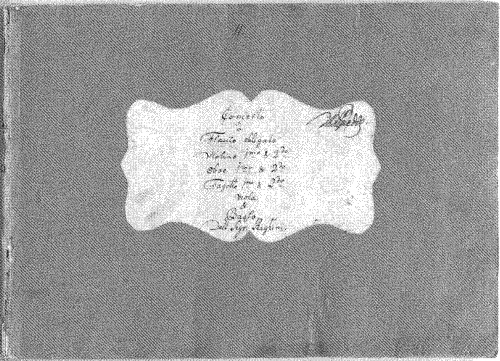 Concerto
a
Flauto obligato
Violino 1mo & 2do
Oboe 1mo & 2do
Fagotto 1mo & 2do
Viola
&
Basso
Dell Sigr. Righini